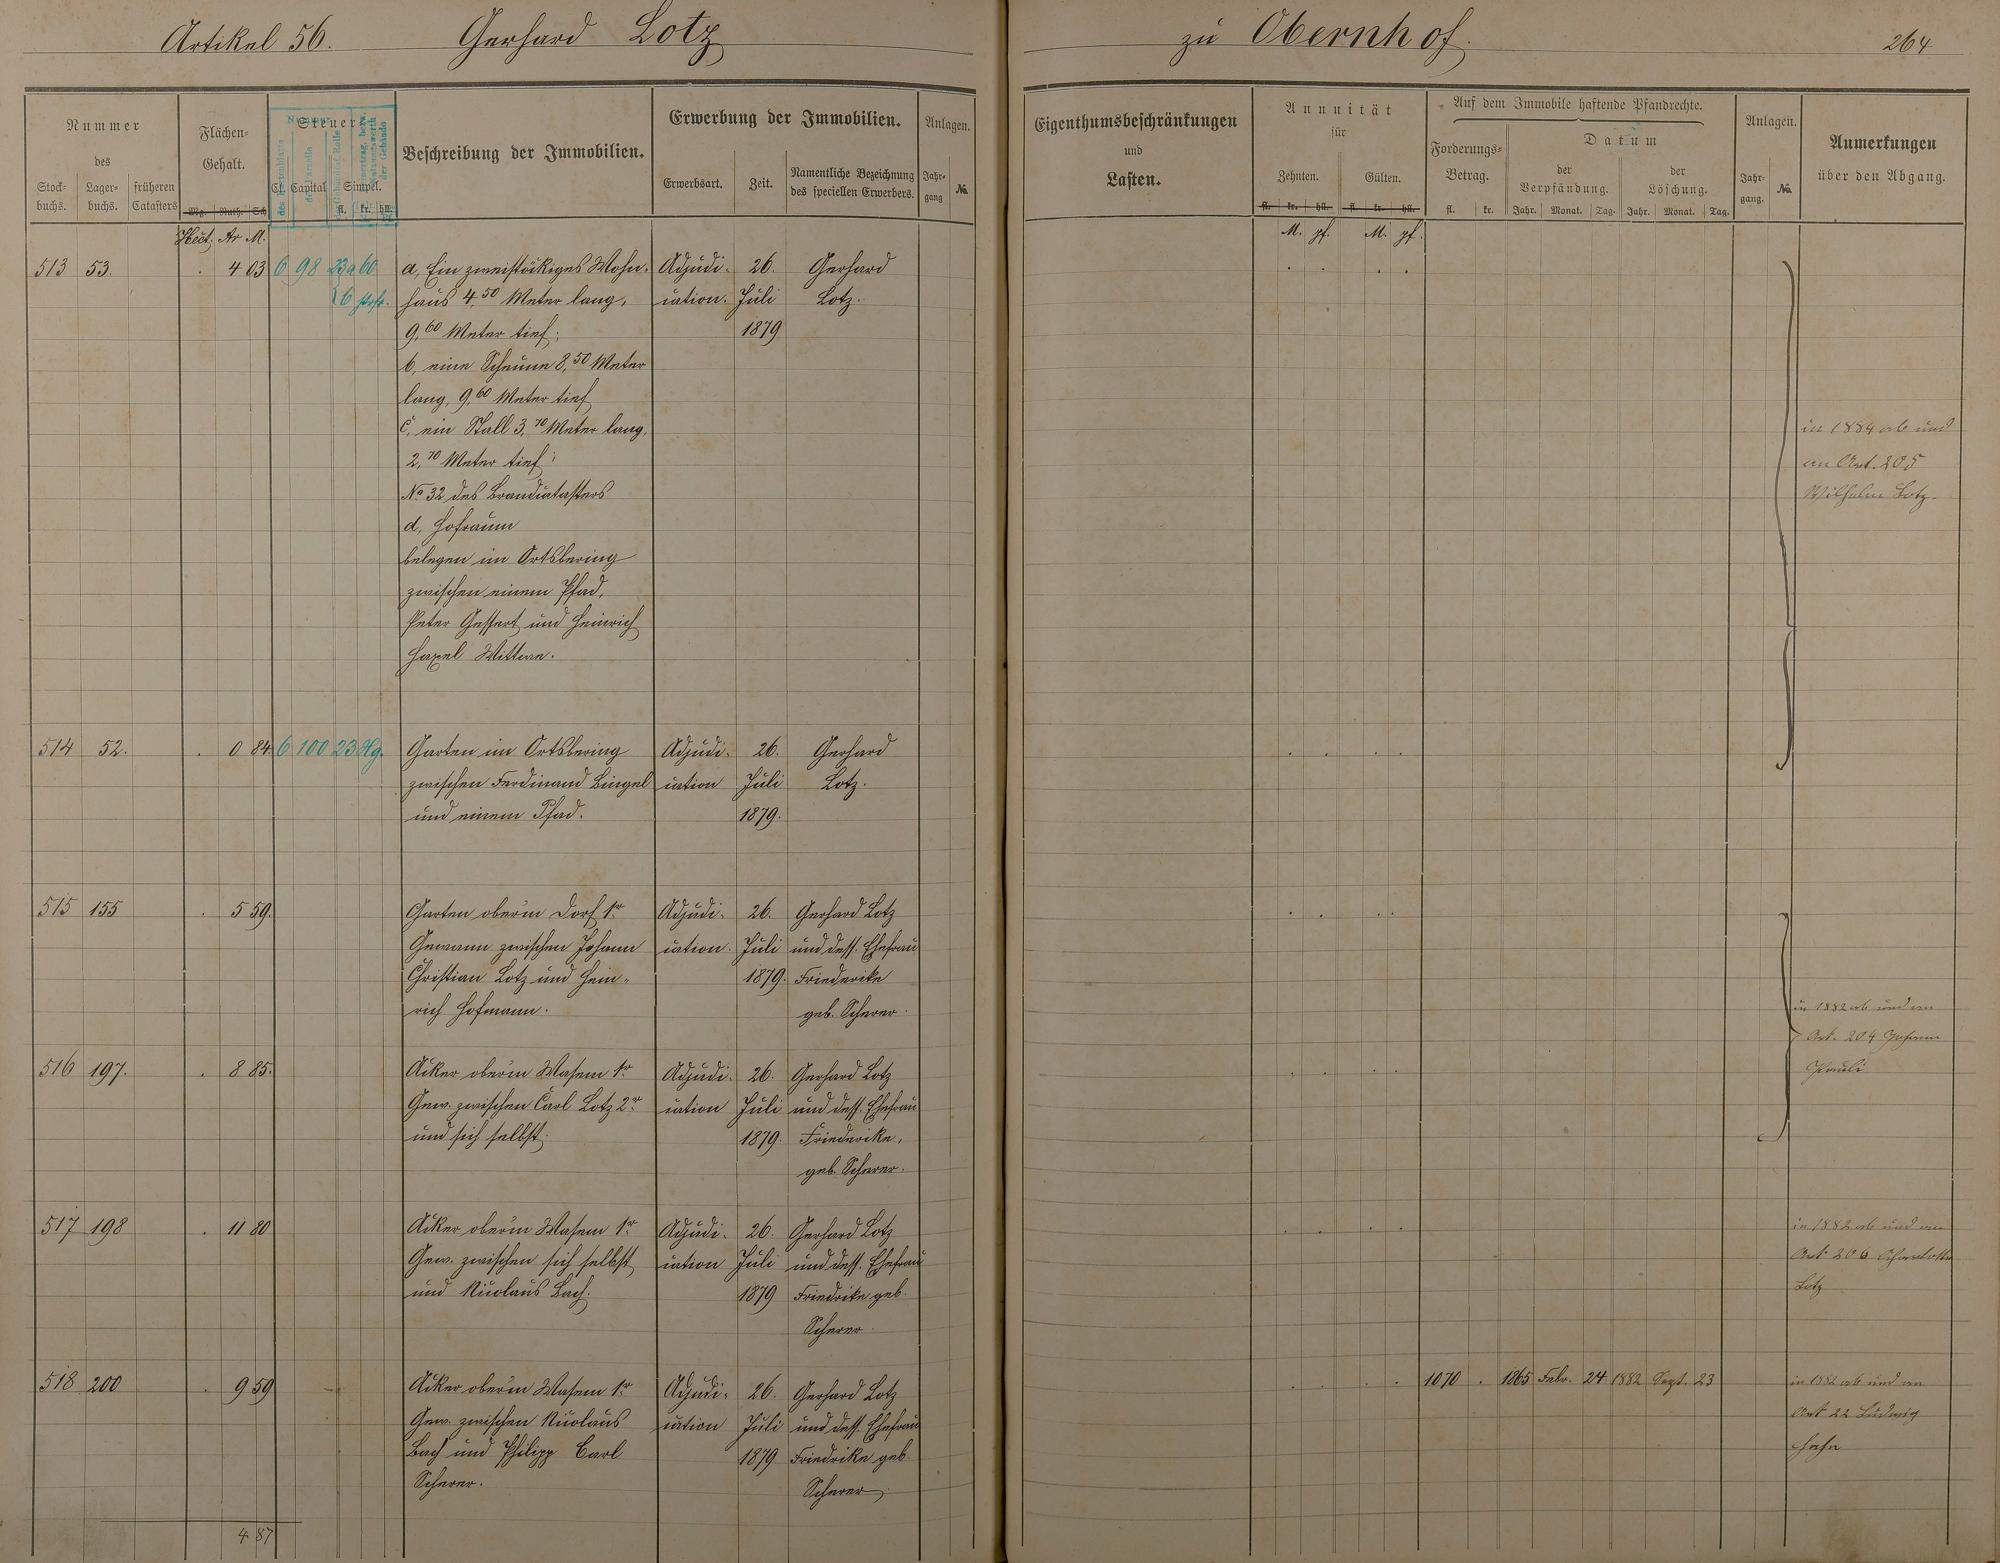 Artikel 56. Gerhard Lotz zu Obernhof. 264
Nummer
des
Stock-
buchs.
Lager-
buchs.
früheren
Catasters
Flächen-
Gehalt.
Mg. Ruth. Sch
Hect. Ar M.
Steuer
Cl. Capital Simpel.
fl. kr. hll.
Beschreibung der Immobilien.
Erwerbung der Immobilien.
Erwerbsart. Zeit.
Namentliche Bezeichnung
des speciellen Erwerbers.
Anlagen.
Jahr-
gang
No.
Eigenthumsbeschränkungen
und
Lasten.
Annuität
für
Zehnten. Gülten.
fl. kr. hll. fl. kr. hll.
M. pf. M. pf.
Auf dem Immobile haftende Pfandrechte.
Forderungs-
Betrag.
fl. kr.
Datum
der
Verpfändung.
der
Löschung.
Jahr. Monat. Tag. Jahr. Monat. Tag.
Anlagen.
Jahr-
gang.
No.
Anmerkungen
über den Abgang.
513 53. 4 03 6 98 23 a 60 a, Ein zweistöckiges Wohn- Adjudi- 26. Gerhard
haus 4,50 Meter lang, cation. Juli Lotz.
9,60 Meter tief; 1879
b, eine Scheune 8,50 Meter
lang, 9,60 Meter tief
c, ein Stall 3,70 Meter lang,
2,70 Meter tief;
No 32 des Brandcatasters
d, Hofraum
belegen im Ortsbering
zwischen einem Pfad,
Peter Gessert und Heinrich
Haxel Wittwe.
in 1884 ab und
an Art. 205
Wilhelm Lotz.
514 52. 0 84. 6 100 23 Hg. Garten im Ortsbering Adjudi- 26. Gerhard
zwischen Ferdinand Bingel cation Juli Lotz.
und einem Pfad. 1879.
515 155 5 59. Garten ober'm Dorf 1r Adjudi- 26. Gerhard Lotz
Gewann zwischen Johann cation. Juli und dess. Ehefrau
Christian Lotz und Hein- 1879. Friederike
rich Hofmann. geb. Scherer.
in 1882 ab und an
Art. 204
Pauli
516 197. 8 85. Acker ober'm Wasem 1r Adjudi- 26. Gerhard Lotz
Gew. zwischen Carl Lotz 2r cation Juli und dess. Ehefrau
und sich selbst. 1879. Friederike,
geb. Scherer.
517 198 11 80 Acker ober'm Wasem 1r Adjudi- 26. Gerhard Lotz in 1882 ab und an
Gew. zwischen sich selbst cation Juli und dess. Ehefrau Art. 206 Charlotte
und Nicolaus Bach. 1879 Friedrike geb. Lotz
Scherer.
518 200 9 59 Acker ober'm Wasem 1r Adjudi- 26. Gerhard Lotz 1070 . 1865 Febr. 24 1882 Sept. 23 in 1882 ab und an
Gew. zwischen Nicolaus cation Juli und dess. Ehefrau Art 22 Ludwig
Bach und Philipp Carl 1879 Friedrike geb. Hehn
Scherer. Scherer.
4 87